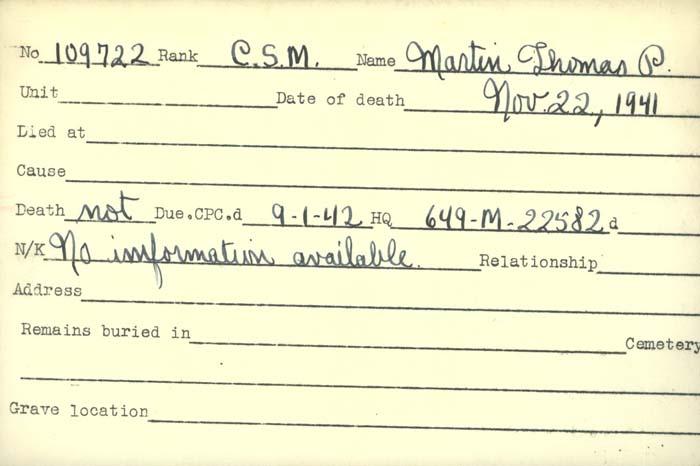 No 109722 Rank C.S.M. Name Martin Thomas P.
Unit Date of death Nov. 22, 1941
Died at
Cause
Death not Due.CPC.d 9-1-42 HQ 649-M-22582 d
N/K No imformation available. Relationship
Address
Remains buried in Cemetery
Grave location